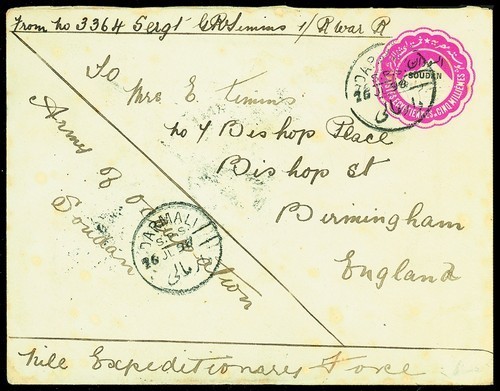 From No 3364 Sergt G R Simms 1/R War R
To
Mrs E. Timms
No 4 Bishop Place
Bishop St
Birmingham
England
Army of occupation
Soudan
Nile Expeditionary Force
السودان
SOUDAN
CINQ MILLIEMES
DARMALI
26 JL 98